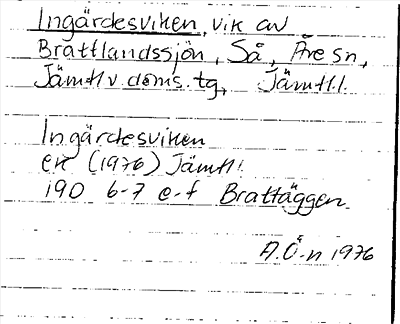 Ingärdesviken, vik av
Brattlandssjön, Så, Åre sn,
Jämtl v. doms. tg, Jämtl.l.
Ingärdesviken
ek (1976) Jämtl.
19D 6-7 e-f Brattäggen
A.Ö-n 1976